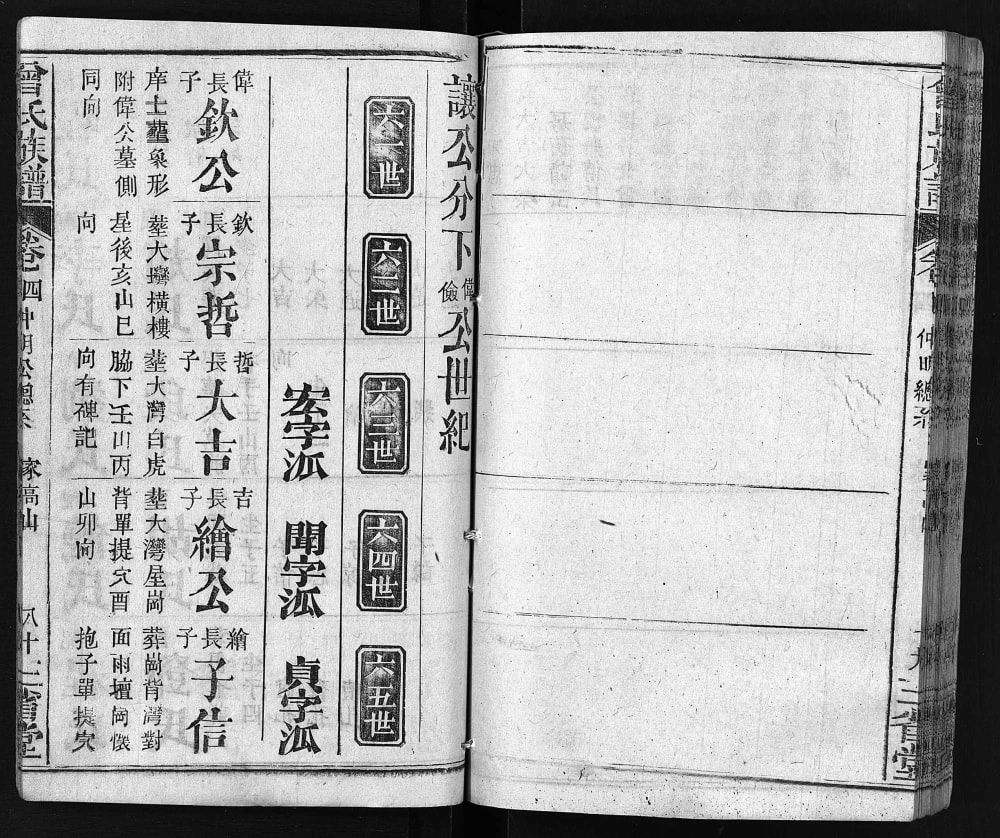 仲明總系
三省堂
讓公分下偉儉公世紀
六一世
六二世
六三世
六四世
六五世
宏字派
聞字派
貞字派
偉長子
欽公
庠士塟象形
附偉公墓側
同向
欽長子
宗哲
塟大灣橫樓
屋後亥山巳
向
哲長子
大吉
塟大灣白虎
脇下壬山丙
向有碑記
吉長子
繪公
塟大灣屋崗
背單提穴酉
山卯向
繪長子
子信
葬崗背灣對
面雨壇崗儴
抱子單提穴
曾氏族譜
卷四
仲明公總系
八十
三省堂